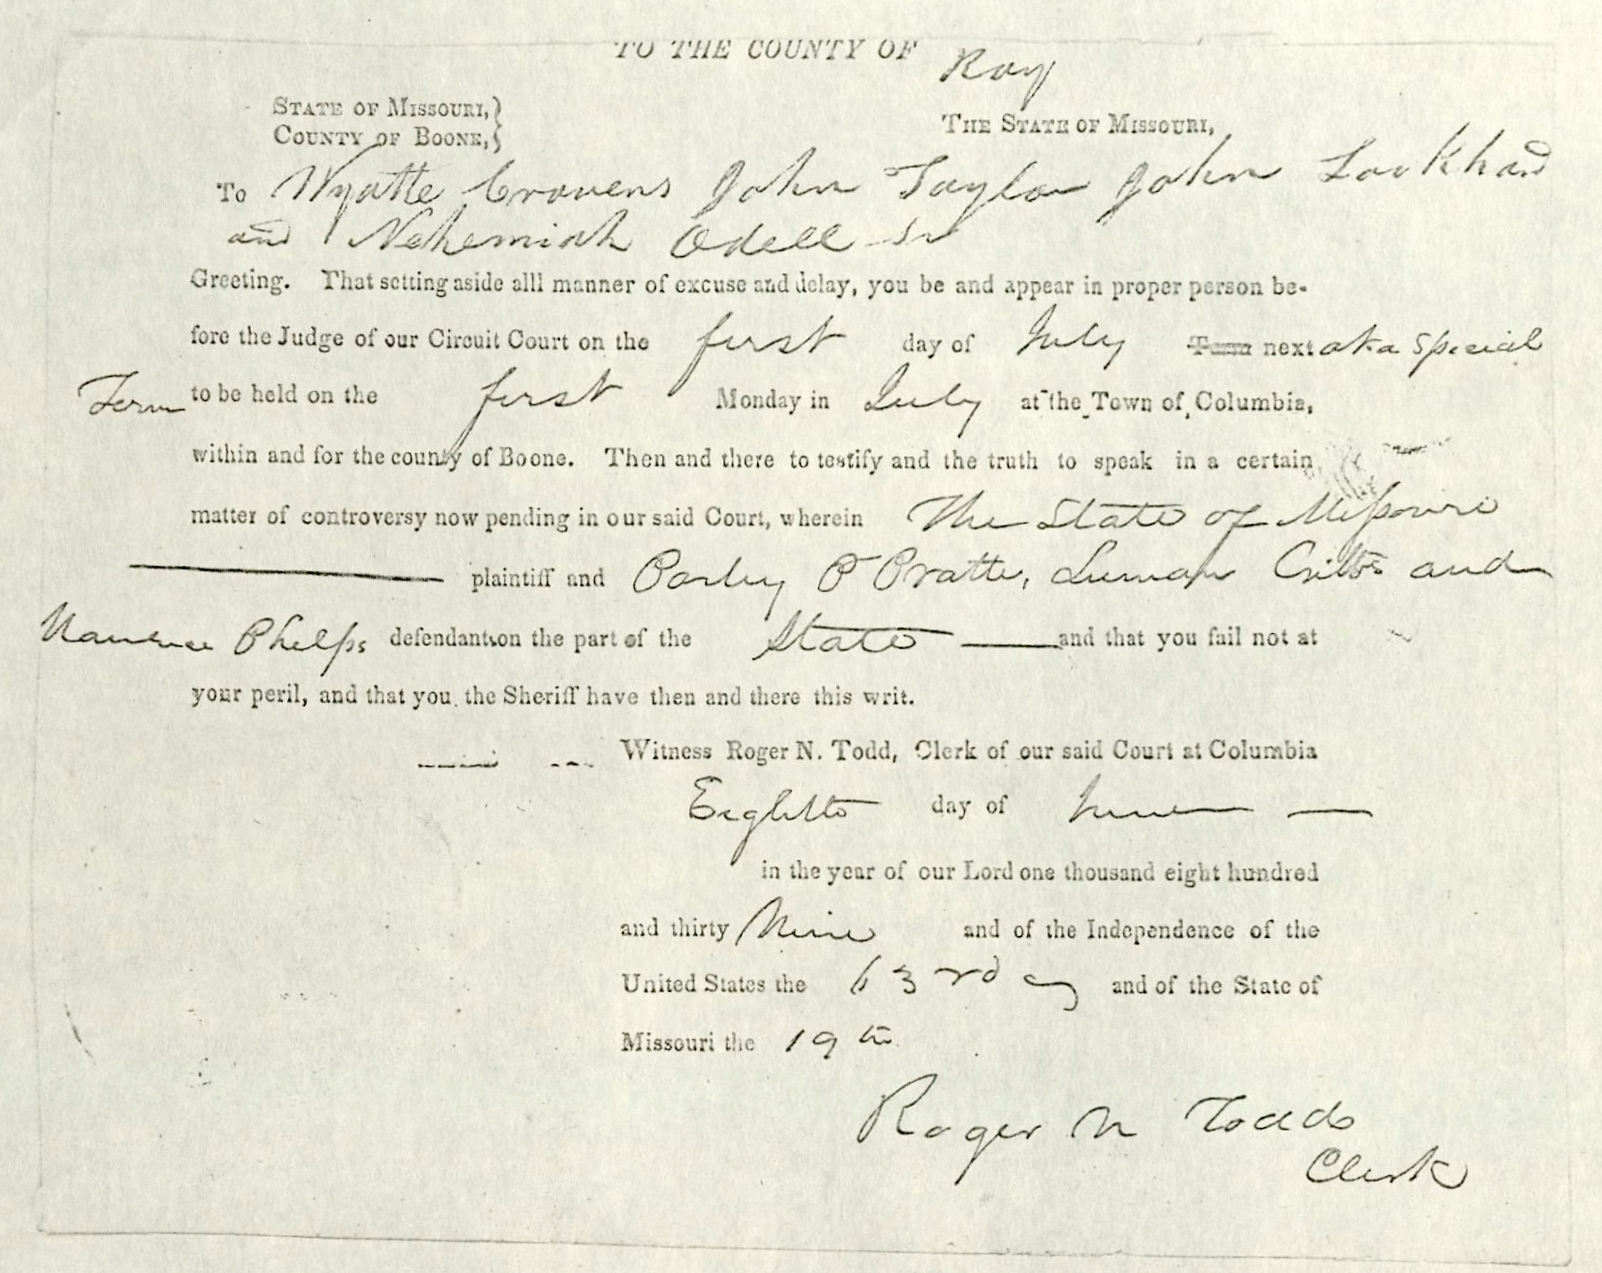 TO THE COUNTY OF Ray
STATE OF MISSOURI,}
COUNTY OF BOONE,}
THE STATE OF MISSOURI,
To Wyatte Cravens John Taylor John Lockhard
and Nehemiah Odell Sr
Greeting. That setting aside alll manner of excuse and delay, you be and appear in proper person be-
fore the Judge of our Circuit Court on the first day of July Term next at a Special
Term to be held on the first Monday in July at the Town of Columbia,
within and for the county of Boone. Then and there to testify and the truth to speak in a certain
matter of controversy now pending in our said Court, wherein The State of Missouri
plaintiff and Parley P Pratte, Luman and
Phelps defendants on the part of the State and that you fail not at
your peril, and that you the Sheriff have then and there this writ.
Witness Roger N. Todd, Clerk of our said Court at Columbia
Eighth day of June
in the year of our Lord one thousand eight hundred
and thirty Nine and of the Independence of the
United States the 63rd and of the State of
Missouri the 19th
Roger N Todd
Clerk